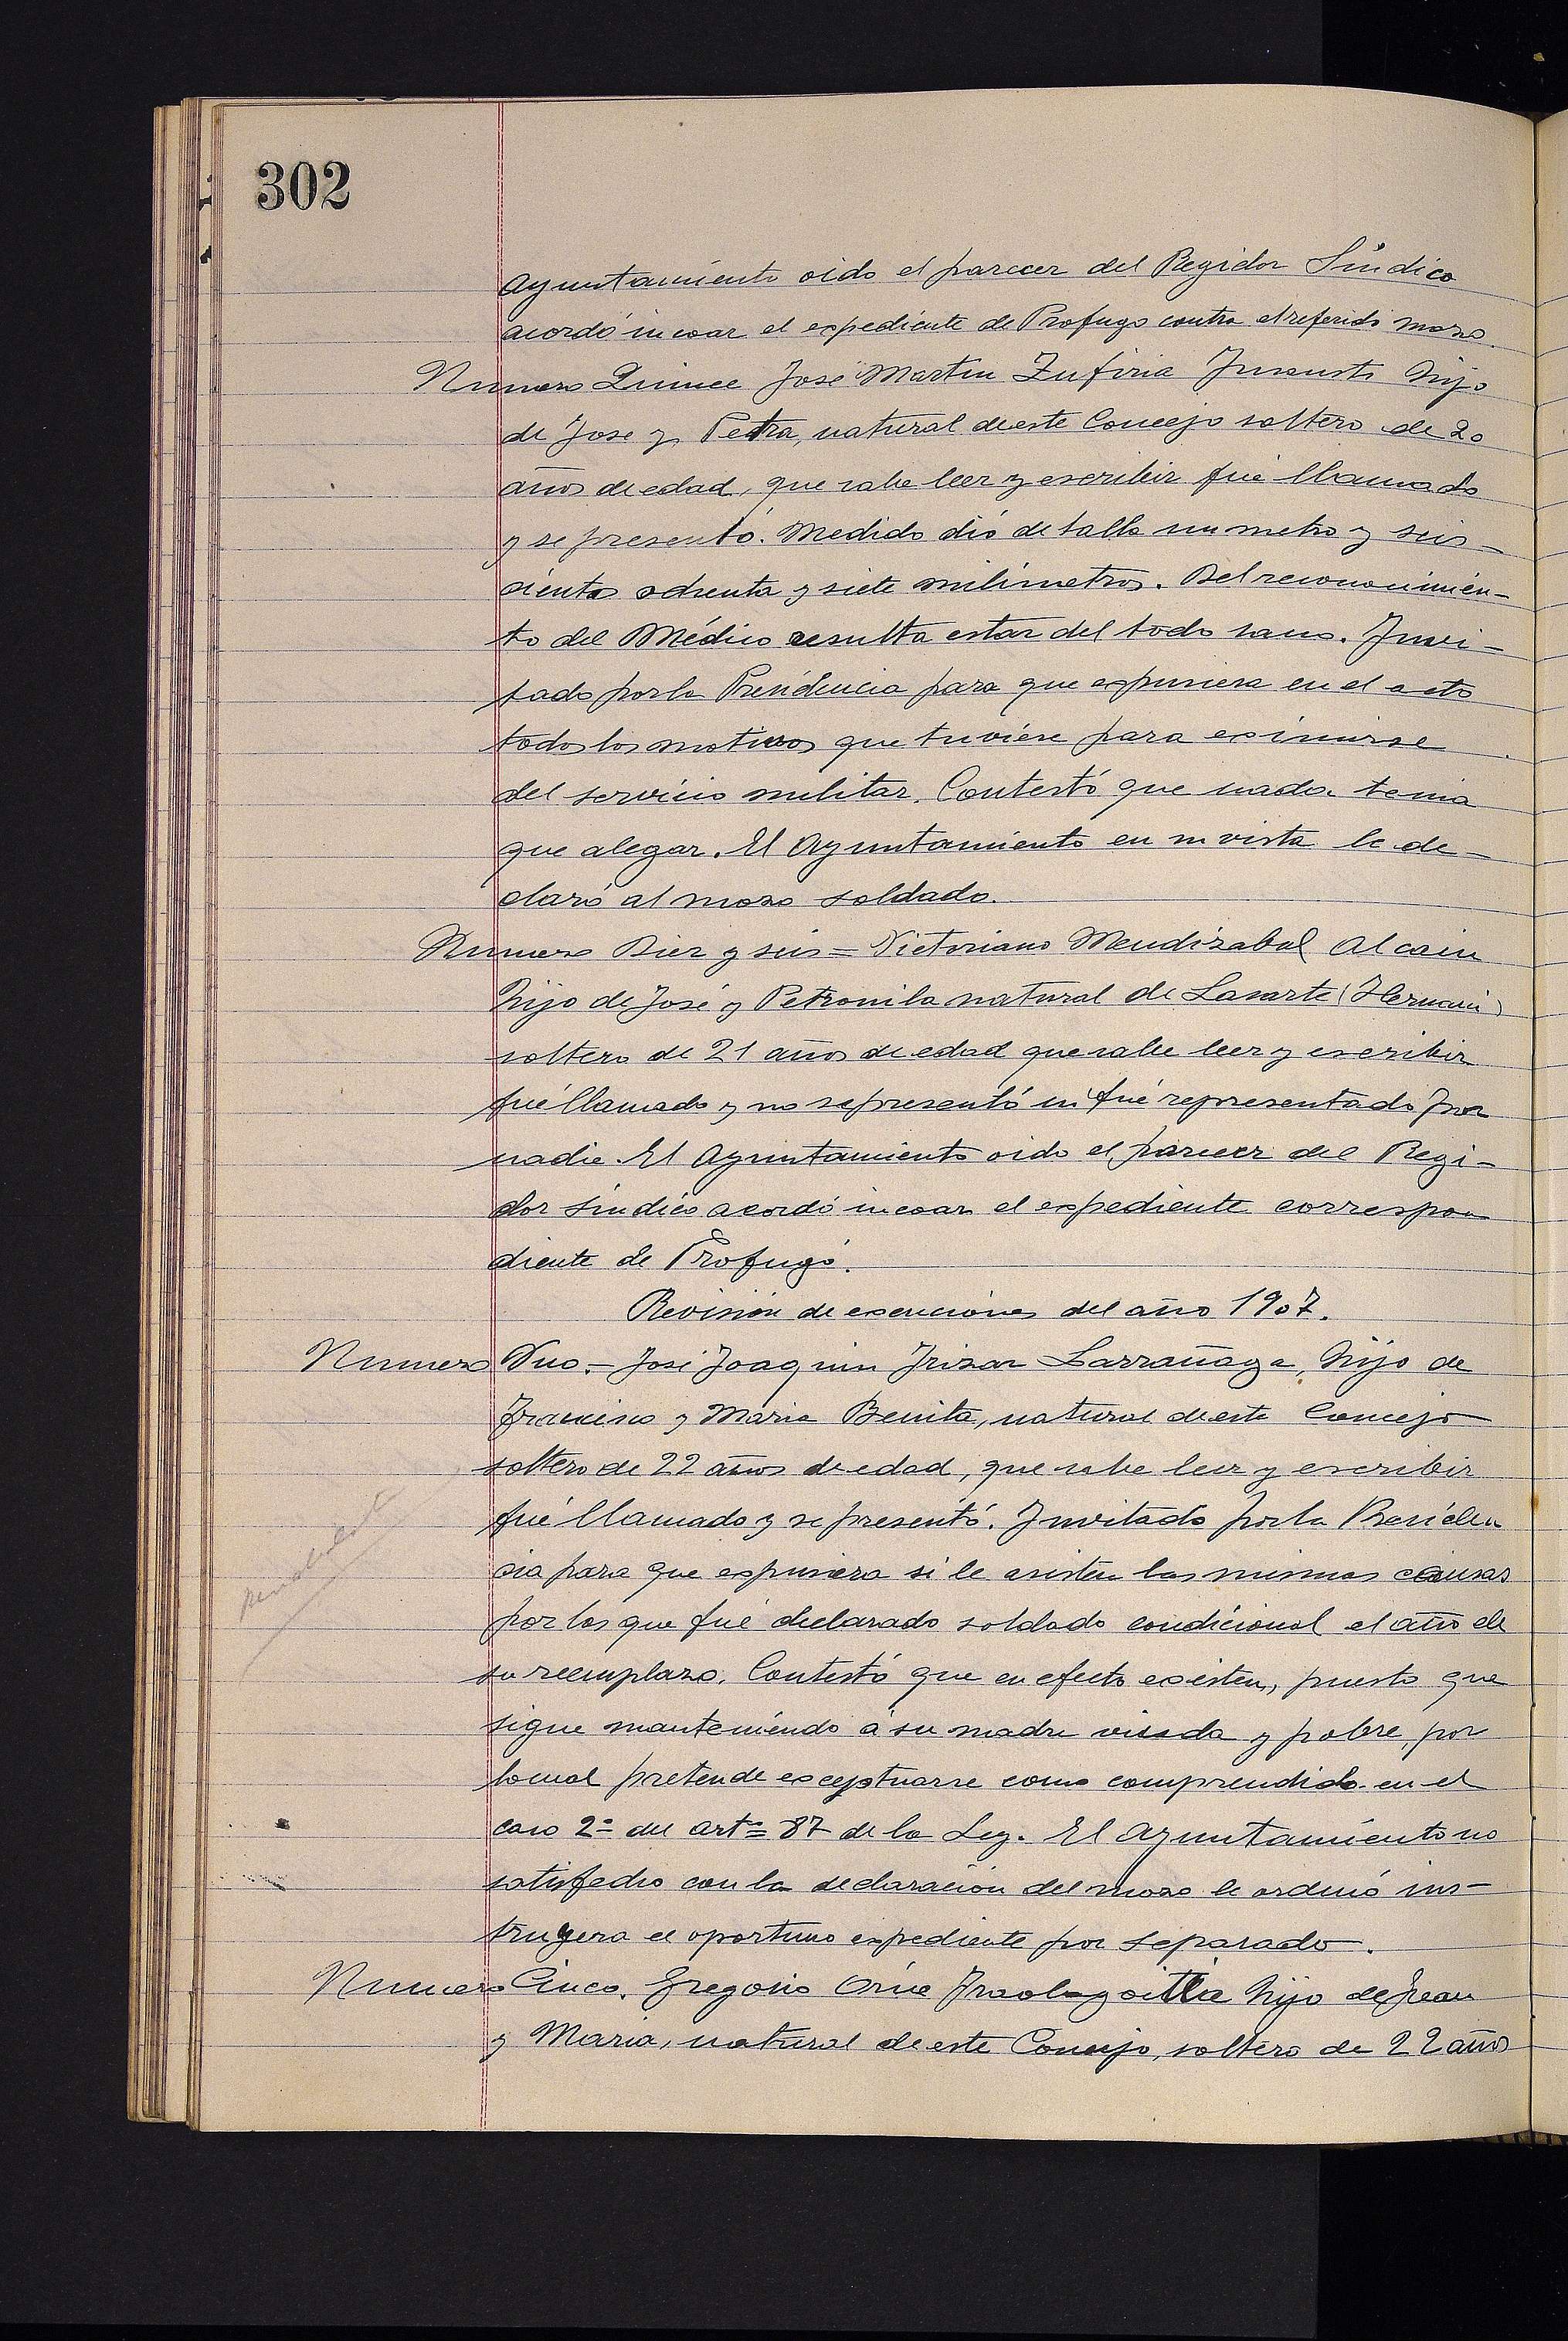 302
Ayuntamiento oido el parecer del Regidor Sindico
acordó incoar el expediente de Profugo contra el referido mozo.
Numero Quince José Martin Zufiria Junsusti hijo
de Jose y Petra, natural de este Concejo soltero de 20
años de edad, que sabe leer y escribir fué llamado
y se presentó. Medido dió de talla un metro y seis-
cientos ochenta y siete milimetros. Del reconocimien-
to del Médico resulta estar del todo sano. Invi-
tado por la Presidencia para que expusiera en el acto
todos los motivos que tuviere para eximirse
del servicio militar. Contestó que nada tenia
que alegar. El Ayuntamiento en su vista le de-
claró al mozo soldado.
Numero Diez y seis = Victoriano Mendizabal Alcain
hijo de José y Petronila natural de Lasarte (Hernani)
soltero de 21 años de edad que sabe leer y escribir
fué llamado y no se presentó ni fué representado por
nadie. El Ayuntamiento oido el parecer del Regi-
dor Sindico acordó incoar el expediente correspon
diente de Profugo.
Revisión de exenciones del año 1907.
Numero Uno. - José Joaquin Irizar Larrañaga, hijo de
Francisco y Maria Benita, natural de este Concejo
soltero de 22 años de edad, que sabe leer y escribir
fué llamado y se presentó. Invitado por la Presiden
cia para que expusiera si le asisten las mismas causas
por las que fué declarado soldado condicional el año de
su reemplazo. Contestó que en efecto existen, puesto que
sigue manteniendo á su madre viuda y pobre, por
lo cual pretende exceptuarse como comprendido en el
caso 2º del artº 87 de la Ley. El Ayuntamiento no
satisfecho con la declaración del mozo le ordenó ins-
truyera el oportuno expediente por separado.
Numero Cinco. Gregorio Oria Iraolagoitia hijo de Juan
y Maria, natural de este Concejo, soltero de 22 años